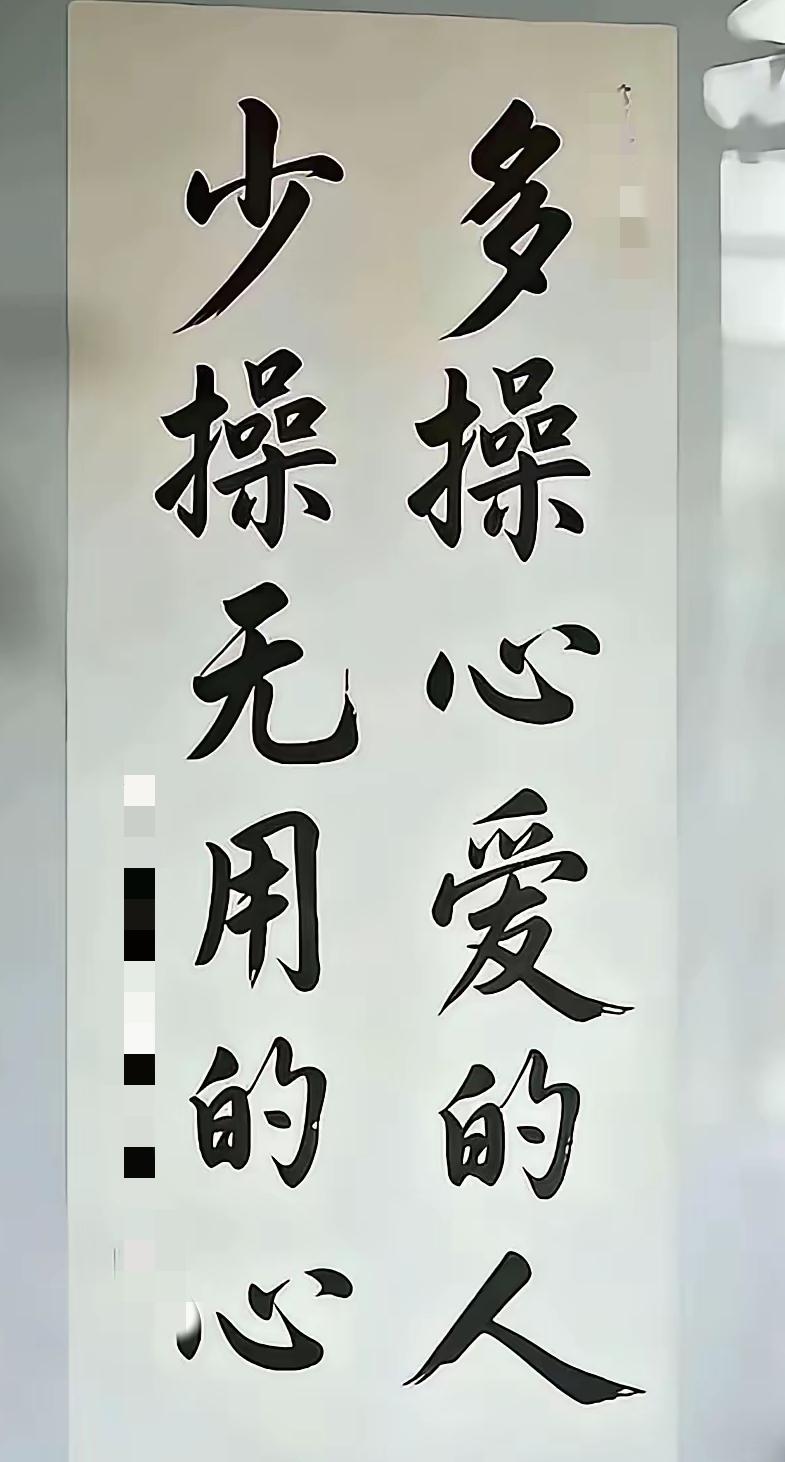 多操心爱的人
少操无用的心